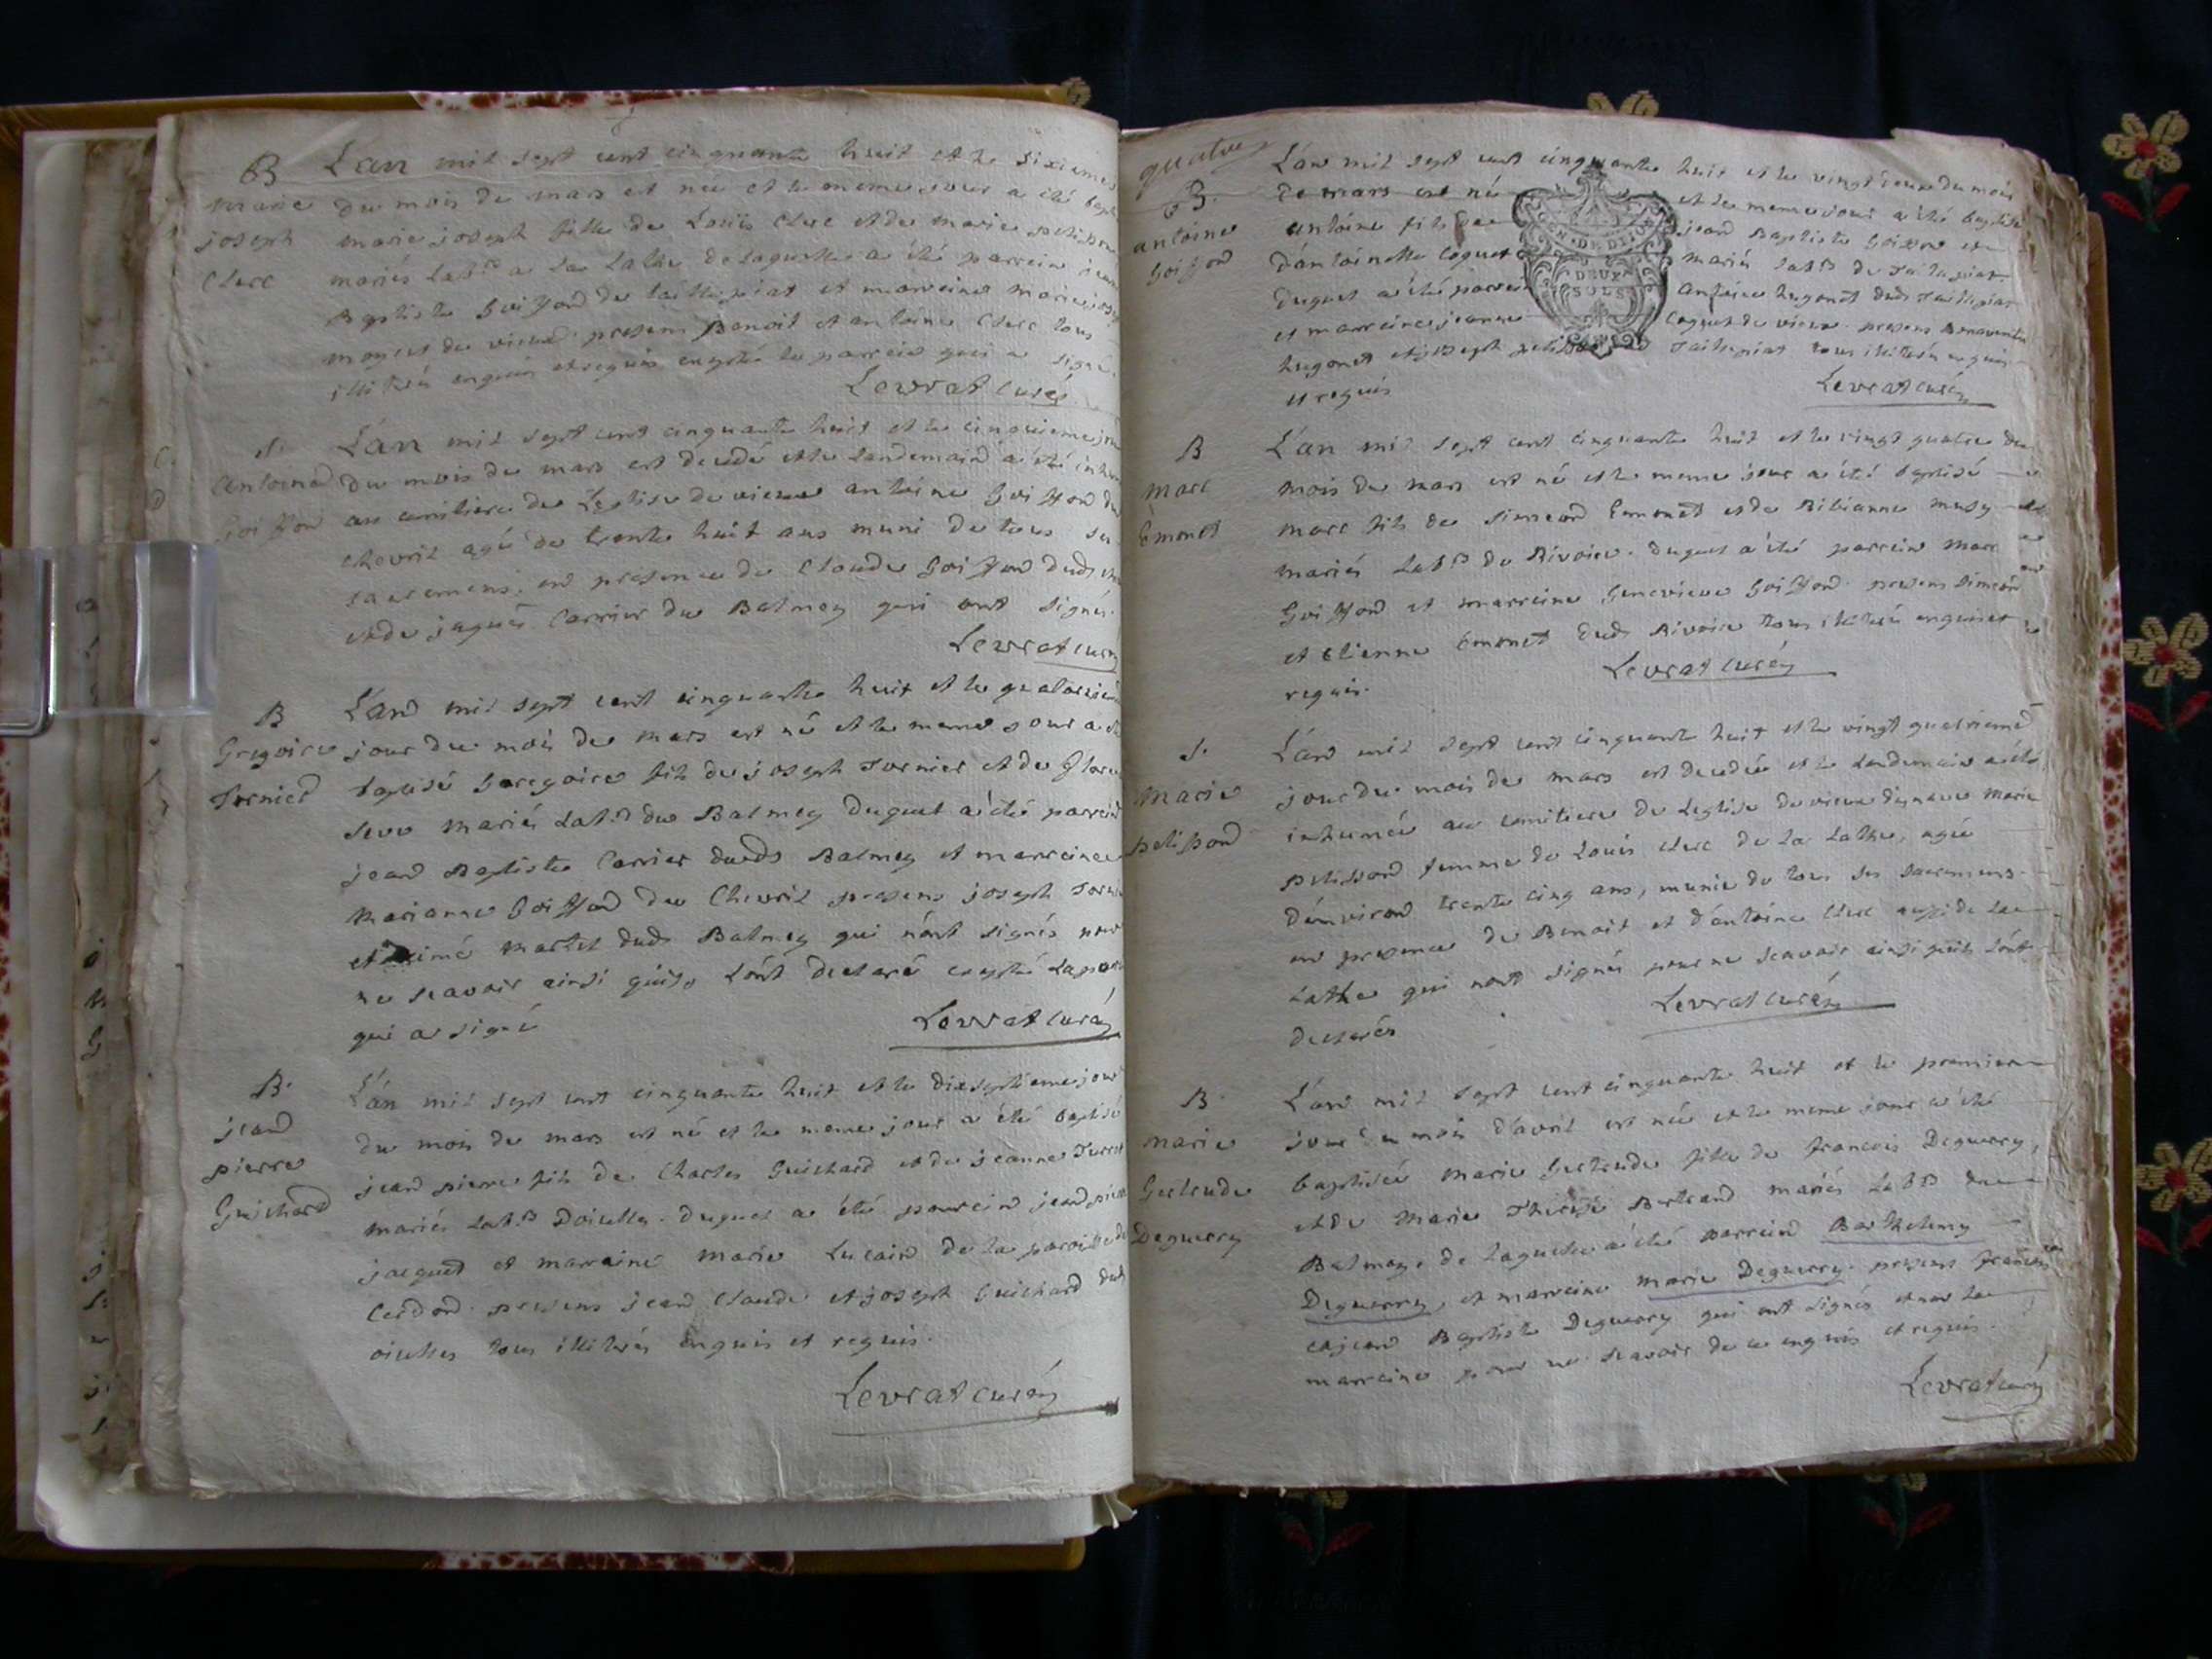 B
marie
joseph
Clerc
L'an mil sept cent cinquante huit et le sixieme
du mois de mars est née et le meme jour a été bapt
marie joseph fille de Loüis Clerc et de marie pelisson
mariés lab.rs a La Lathe de laquelle a été parrein jean
Baptiste Goiffond de taillepiat et marreine marie joseph
moynet de vieux presens Benoit et antoine Clerc tous
illiterés enquis et requis excepté le parrein qui a signé.
Levrat curé
s.
Antoine
Goiffon
L'an mil sept cent cinquante huit et le cinquieme jour
du mois de mars est decedé et le landemain a été inhumé
au cimitiere de Leglise de vieux antoine Goiffond du
chevril agé de trente huit ans muni de tous ses
sacremens. en presence de Claude Goiffond dud.
et de jaques Carrier du Balmey qui ont signés.
Levrat curé
B
Gregoire
Tornier
L'an mil sept cent cinquante huit et le quatorzieme
jour du mois de mars est né et le meme jour a été
baptisé Gregoire fils de joseph Tornier et de
mariés lab.rs du Balmey duquel a été parrein
jean Baptiste Carrier dud. Balmey et marreine
marianne Goiffond du Chevril presens joseph Tornier
et aimé martel dud. Balmey qui n'ont signés pour
ne scavoir ainsi quils l'ont declaré excepté le parrein
qui a signé
Levrat curé
B.
jean
pierre
Guichard
L'an mil sept cent cinquante huit et le dixseptieme jour
du mois de mars est né et le meme jour a été baptisé
jean pierre fils de Charles Guichard et de jeanne
mariés lab.rs Doisselles. duquel a été parrein jean pierre
jacquet et marraine marie Lucain de la paroisse de
Cerdon. presens jean Claude et joseph Guichard dud.
oisselles tous illiterés enquis et requis.
Levrat curé
quatre
B.
antoine
Goiffond
L'an mil sept cent cinquante huit et le vingt deux du mois
de mars est né et le meme jour a été baptisé
antoine fils de jean Baptiste Goiffon et
d'antoinette Coquet mariés lab.rs de Taillepiat
duquel a été parrein antoine hugonet dud. Taillepiat
et marreine jeanne Coquet de vieux. presens Bonaventure
hugonet et joseph pelisson de Taillepiat tous illiterés enquis
et requis
Levrat curé
GEN. DE DIJON
DEUX
SOLS
B
Marc
Emonet
L'an mil sept cent cinquante huit et le vingt quatre du
mois de mars est né et le meme jour a été baptisé
marc fils de simeond Emonet et de Bibianne musy
mariés lab.rs du Rivoire. duquel a été parrein marc
Goiffond et marreine Genevieve Goiffond. presens simeon
et Etienne Emonet dud. Rivoire tous illiterés enquis et
requis.
Levrat curé
s.
Marie
pelissond
L'an mil sept cent cinquante huit et le vingt quatrieme
jour du mois de mars est decedée et le landemain a été
inhumée au cimitiere de Leglise de vieux marie
pelissond femme de Louis clerc de la Lathe, agée
d'environ trente cinq ans, munie de tous ses sacremens.
en presence de Benoit et d'antoine Clerc aussi de la
Lathe qui n'ont signés pour ne scavoir ainsi quils l'ont
declarés
Levrat curé
B.
marie
Gertrude
Deguerry
L'an mil sept cent cinquante huit et le premier
jour du mois d'avril est née et le meme jour a été
baptisée marie Gertrude fille de francois Deguerry,
et de marie Therese Bertrand mariés lab.rs du
Balmay. de laquelle a été parrein Barthelemy
Deguerry, et marreine marie Deguerry. presens francois
et jean Baptiste Deguerry qui ont signés et non la
marreine pour ne scavoir de ce enquis et requis.
Levrat curé